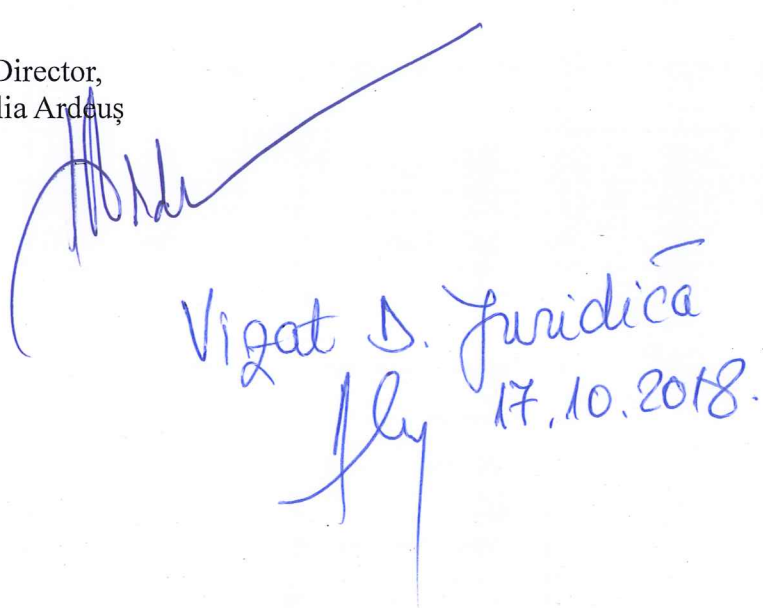 Director,
lia Ardeuș
Vizat D. Juridică
17.10.2018.